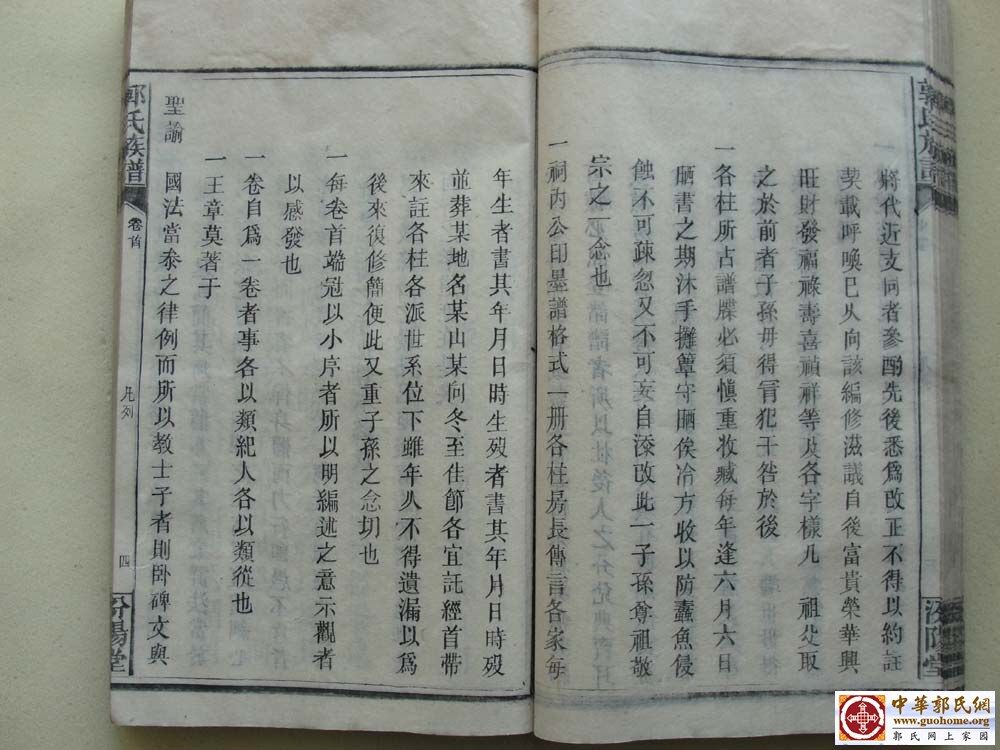 郭氏族譜
汾陽堂
一將代近支同者參酌先後悉爲改正不得以約註
契載呼喚已久向該編修滋議自後富貴榮華興
旺財發福祿壽喜禎祥等及各字樣凡 祖公取
之於前者子孫毋得冒犯干咎於後
一各柱所占譜牒必須愼重收藏每年逢六月六日
晒書之期沐手攤簟守晒俟冷方收以防蠹魚侵
蝕不可疎忽又不可妄自添改此一子孫尊祖敬
宗之一念也
一祠內公印墨譜格式一册各柱房長傳言各家每
年生者書其年月日時生歿者書其年月日時歿
並葬某地名某山某向冬至佳節各宜託經首帶
來註各柱各派世系位下雖年久不得遺漏以爲
後來復修簡便此又重子孫之念切也
一每卷首端冠以小序者所以明編述之意示觀者
以感發也
一卷自爲一卷者事各以類紀人各以類從也
一王章莫著于
國法當泰之律例而所以教士子者則卧碑文與
聖諭
郭氏族譜
卷首
凡例
四
汾陽堂
中華郭氏網
www.guohome.org
郭氏网上家园